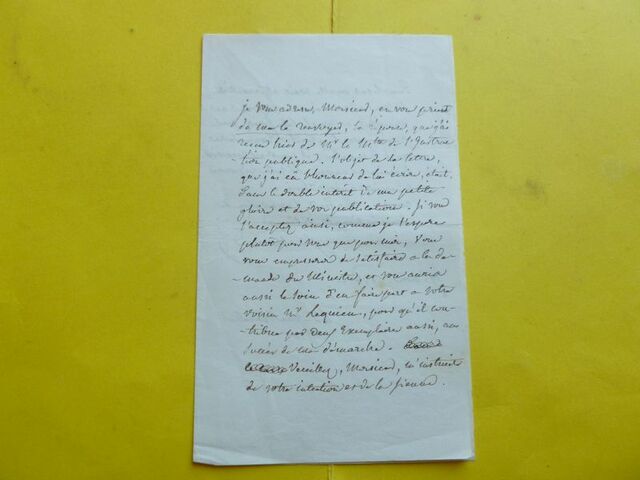 je vous adresse, Monsieur, en vous priant
de me la renvoyer, la réponse, que j'ai
reçue hier de Mr le Mtre de l'Instruc
tion publique. l'objet de la lettre,
que j'ai eu l'honneur de lui écrire, était
dans le double interet de ma petite
gloire et de vos publications. Si vous
l'acceptez ainsi, comme je l'espère
plutot pour vous que pour moi, Vous
vous empresserez de satisfaire a la de
mande du Ministre, et vous aurez
aussi le soin d'en faire part a votre
voisin Mr Requien, pour qu'il con
tribue par deux Exemplaires aussi, au
succès de ma démarche.
Veuillez, Monsieur, m'instruire
de votre intention et de la sienne.